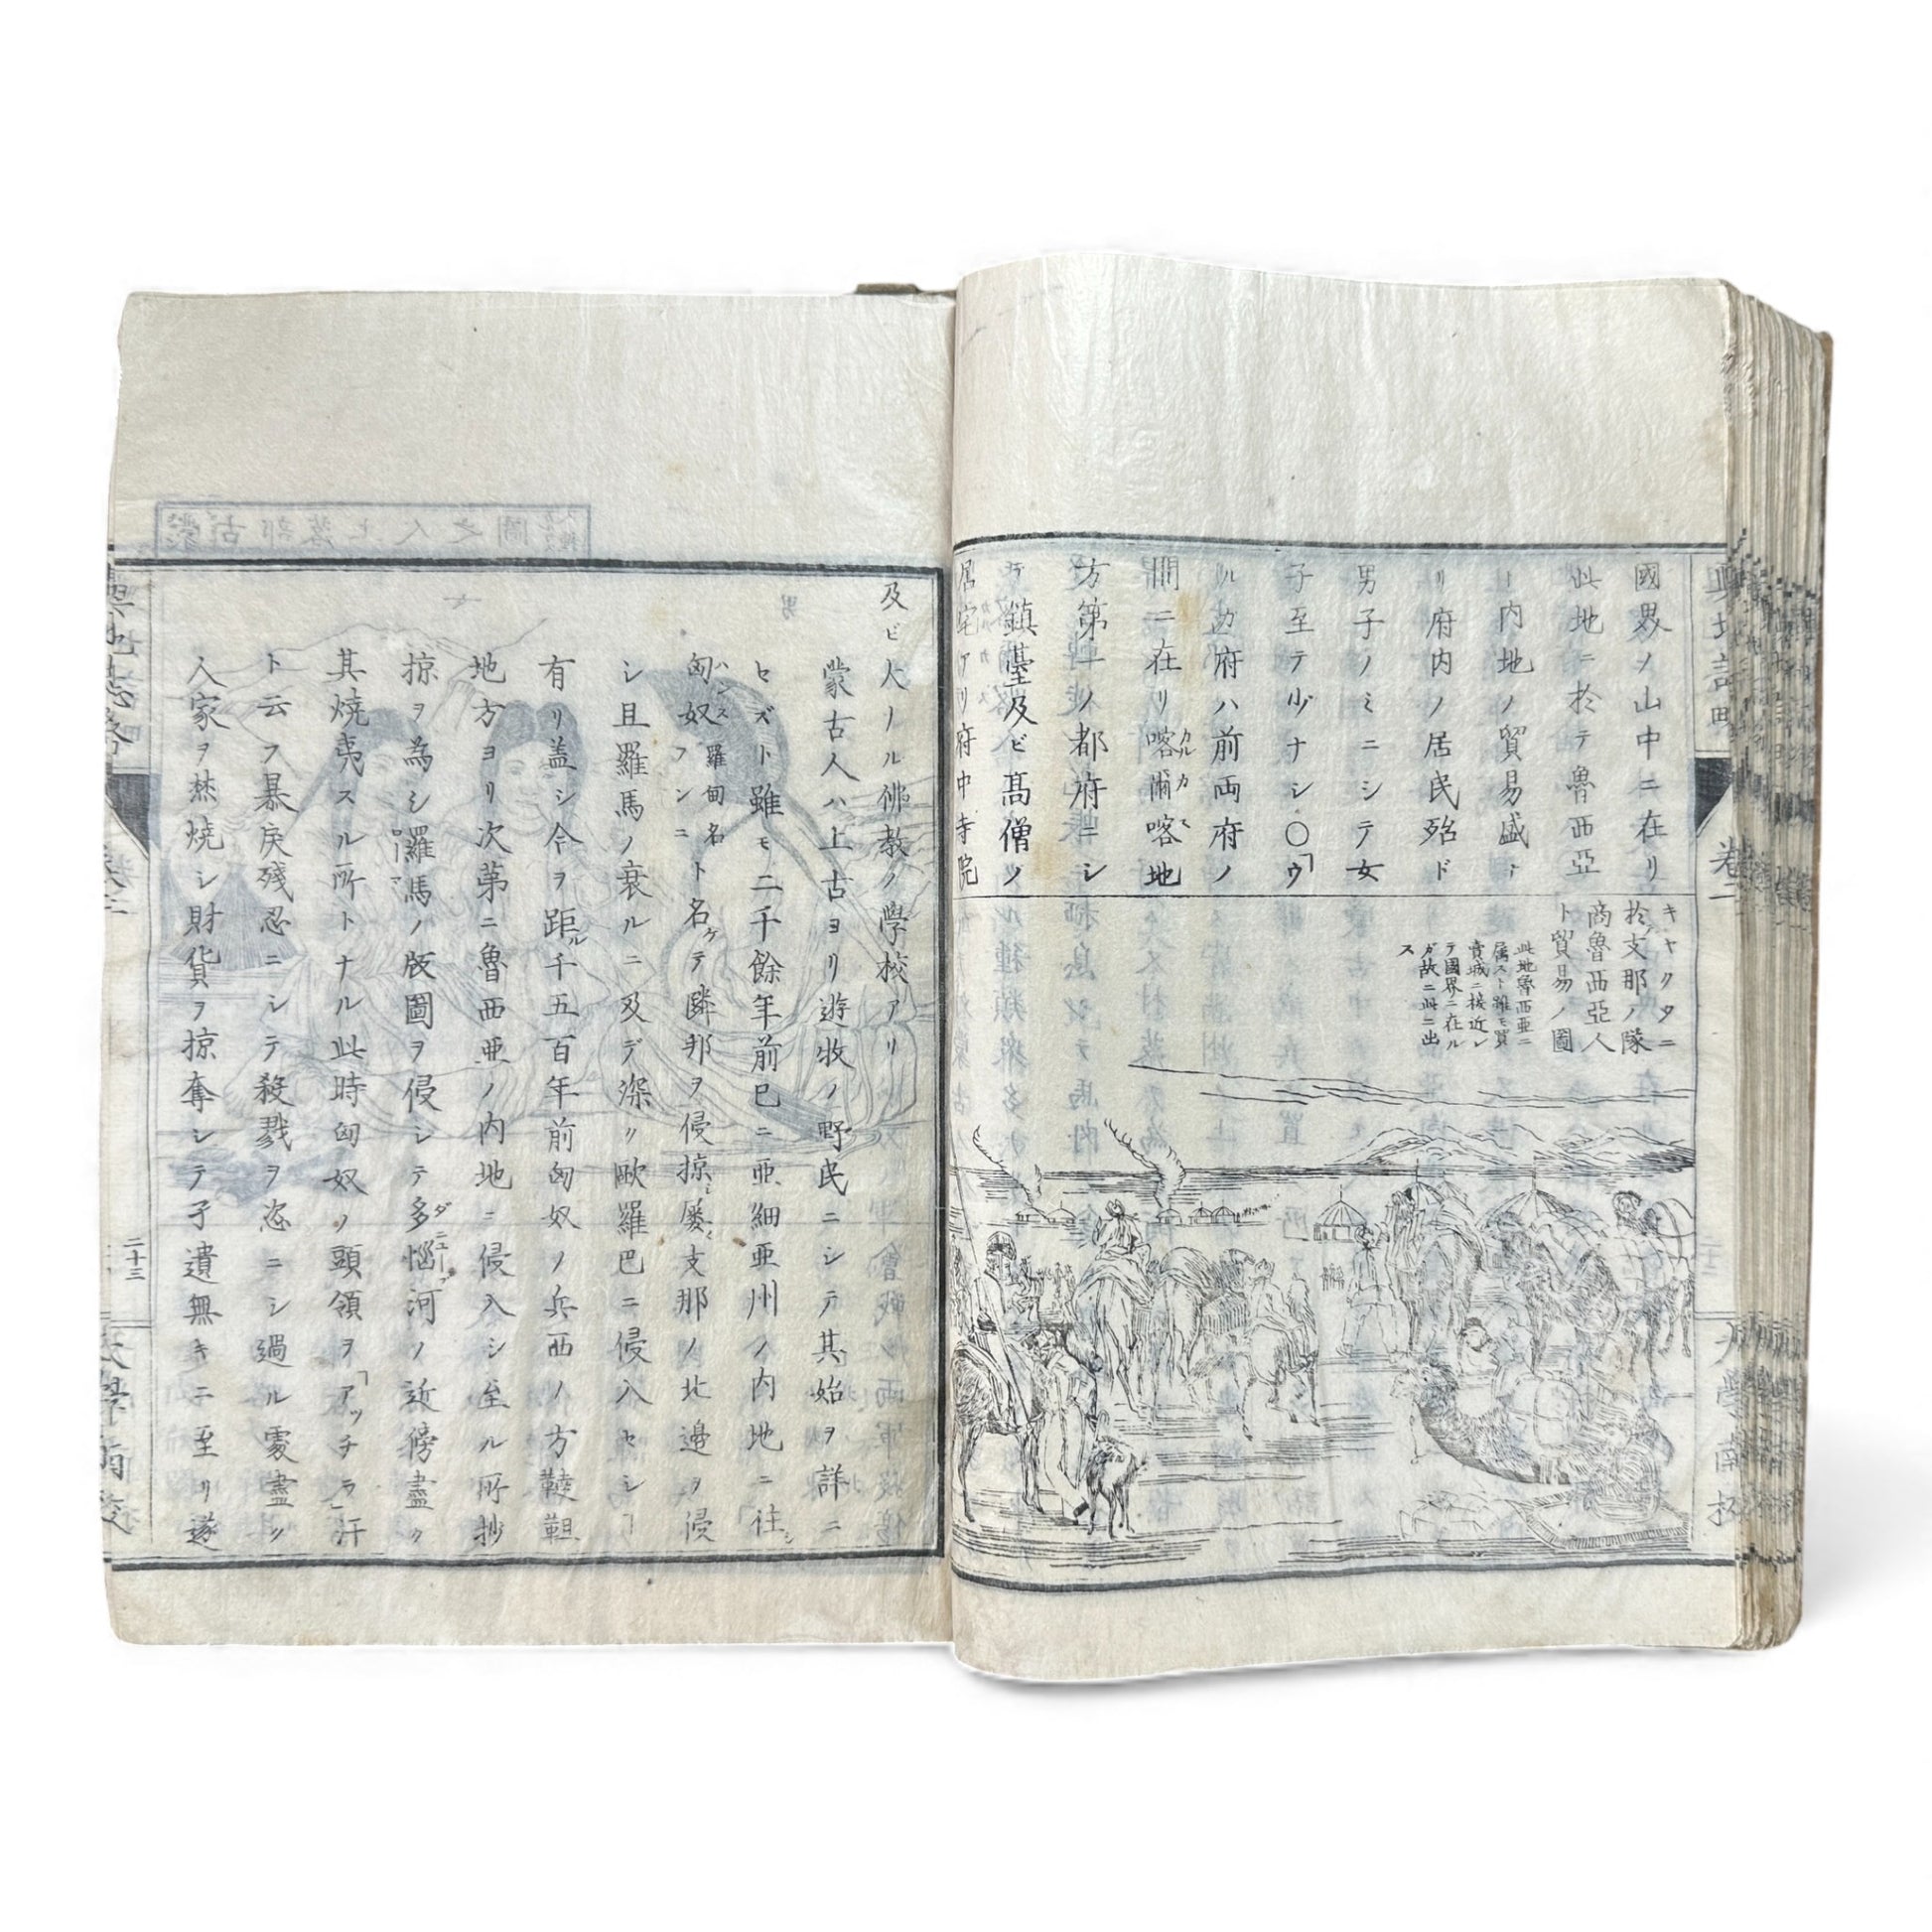 國界ノ山中ニ在リ
此地ニ於テ魯西亞
ト内地ノ貿易盛ナ
リ府内ノ居民殆ド
男子ノミニシテ女
子至テ少ナシ〇「ウ
ルガ府ハ前両府ノ
間ニ在リ喀爾喀地
方第一ノ都府ニシ
テ鎮臺及ビ髙僧ノ
居宅アリ府中寺院
キヤクタニ
於テ支那ノ隊
商魯西亞人
ト貿易ノ圖
此地魯西亜ニ
属スト雖モ買
賣城ニ接近シ
テ國界ニ在ル
ガ故ニ此ニ出
ス
及ビ大ナル佛教ノ學校アリ
蒙古人ハ上古ヨリ遊牧ノ野民ニシテ其始ヲ詳ニ
セズト雖モ二千餘年前巳ニ亜細亜州ノ内地ニ在
匈奴羅甸名フンニト名ケテ隣邦ヲ侵掠シ屡支那ノ北邉ヲ侵
シ且羅馬ノ衰ルニ及デ深ク歐羅巴ニ侵入セシ
有リ盖シ今ヲ距ル千五百年前匈奴ノ兵西ノ方韃靼
地方ヨリ次第ニ魯西亜ノ内地ニ侵入シ至ル所抄
掠ヲ為シ羅馬ノ版圖ヲ侵シテ多惱河ノ近傍盡ク
其焼夷スル所トナル此時匈奴ノ頭領ヲ「アッチラ」汗
ト云フ暴戻殘忍ニシテ殺戮ヲ恣ニシ過ル處盡ク
人家ヲ焚燒シ財貨ヲ掠奪シテ孑遺無キニ至リ遂
二十三